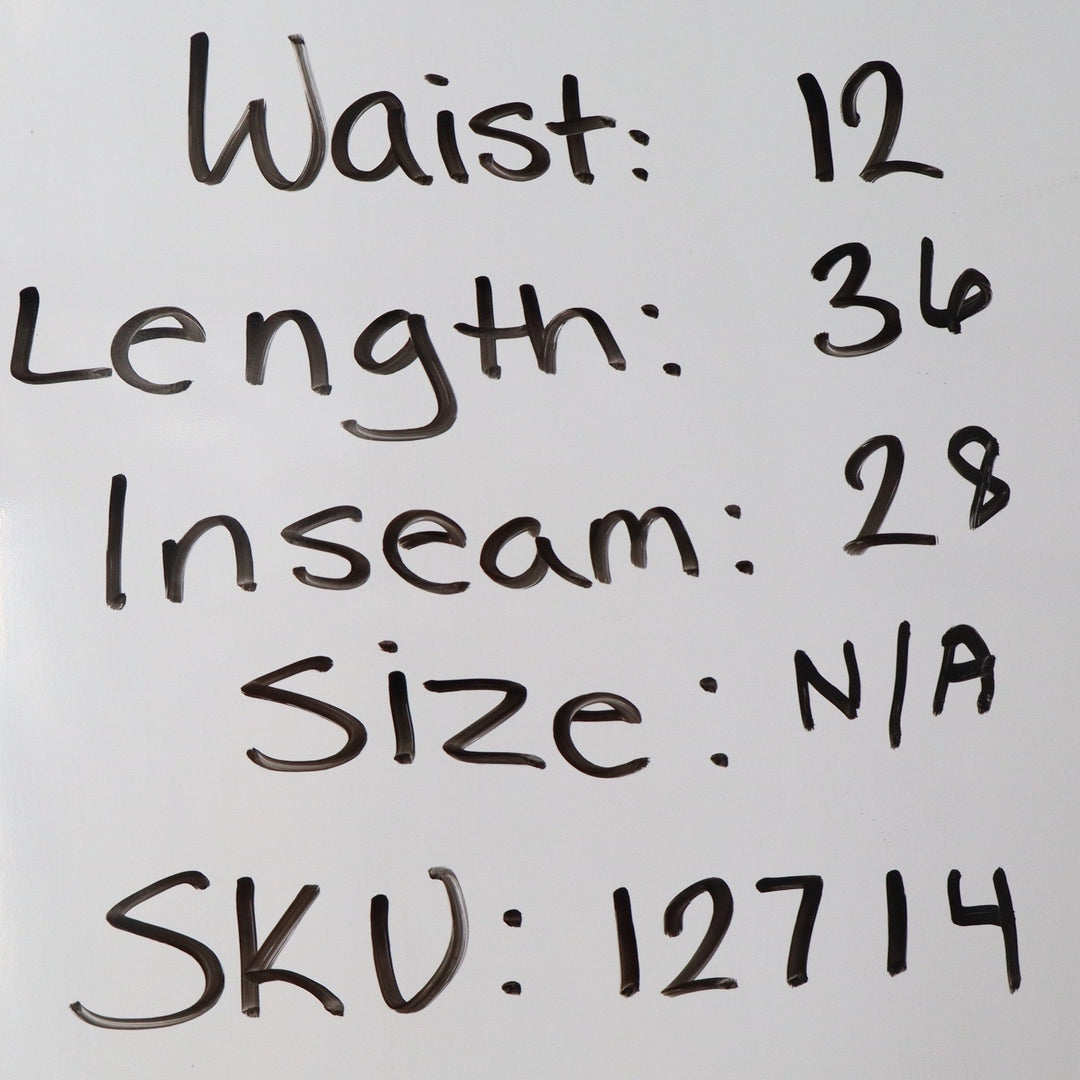 Waist: 12
Length: 36
Inseam: 28
Size: N/A
SKU: 12714